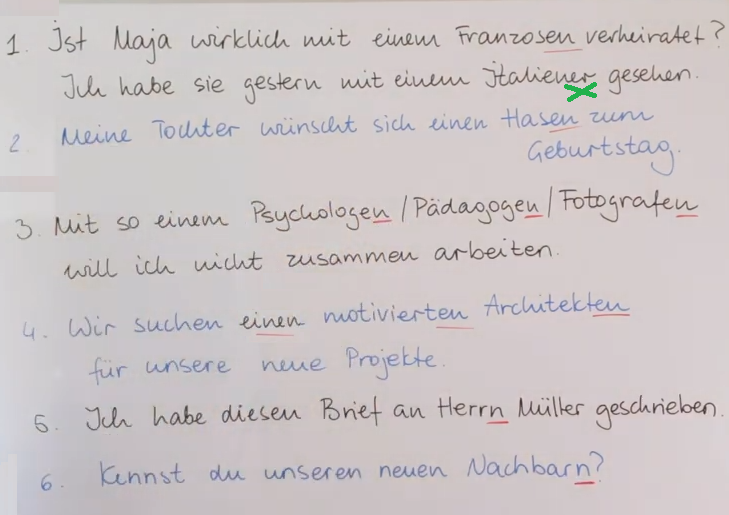 1. Ist Maja wirklich mit einem Franzosen verheiratet?
Ich habe sie gestern mit einem Italiener gesehen.
2. Meine Tochter wünscht sich einen Hasen zum
Geburtstag.
3. Mit so einem Psychologen / Pädagogen / Fotografen
will ich nicht zusammen arbeiten.
4. Wir suchen einen motivierten Architekten
für unsere neue Projekte.
5. Ich habe diesen Brief an Herrn Müller geschrieben.
6. Kennst du unseren neuen Nachbarn?